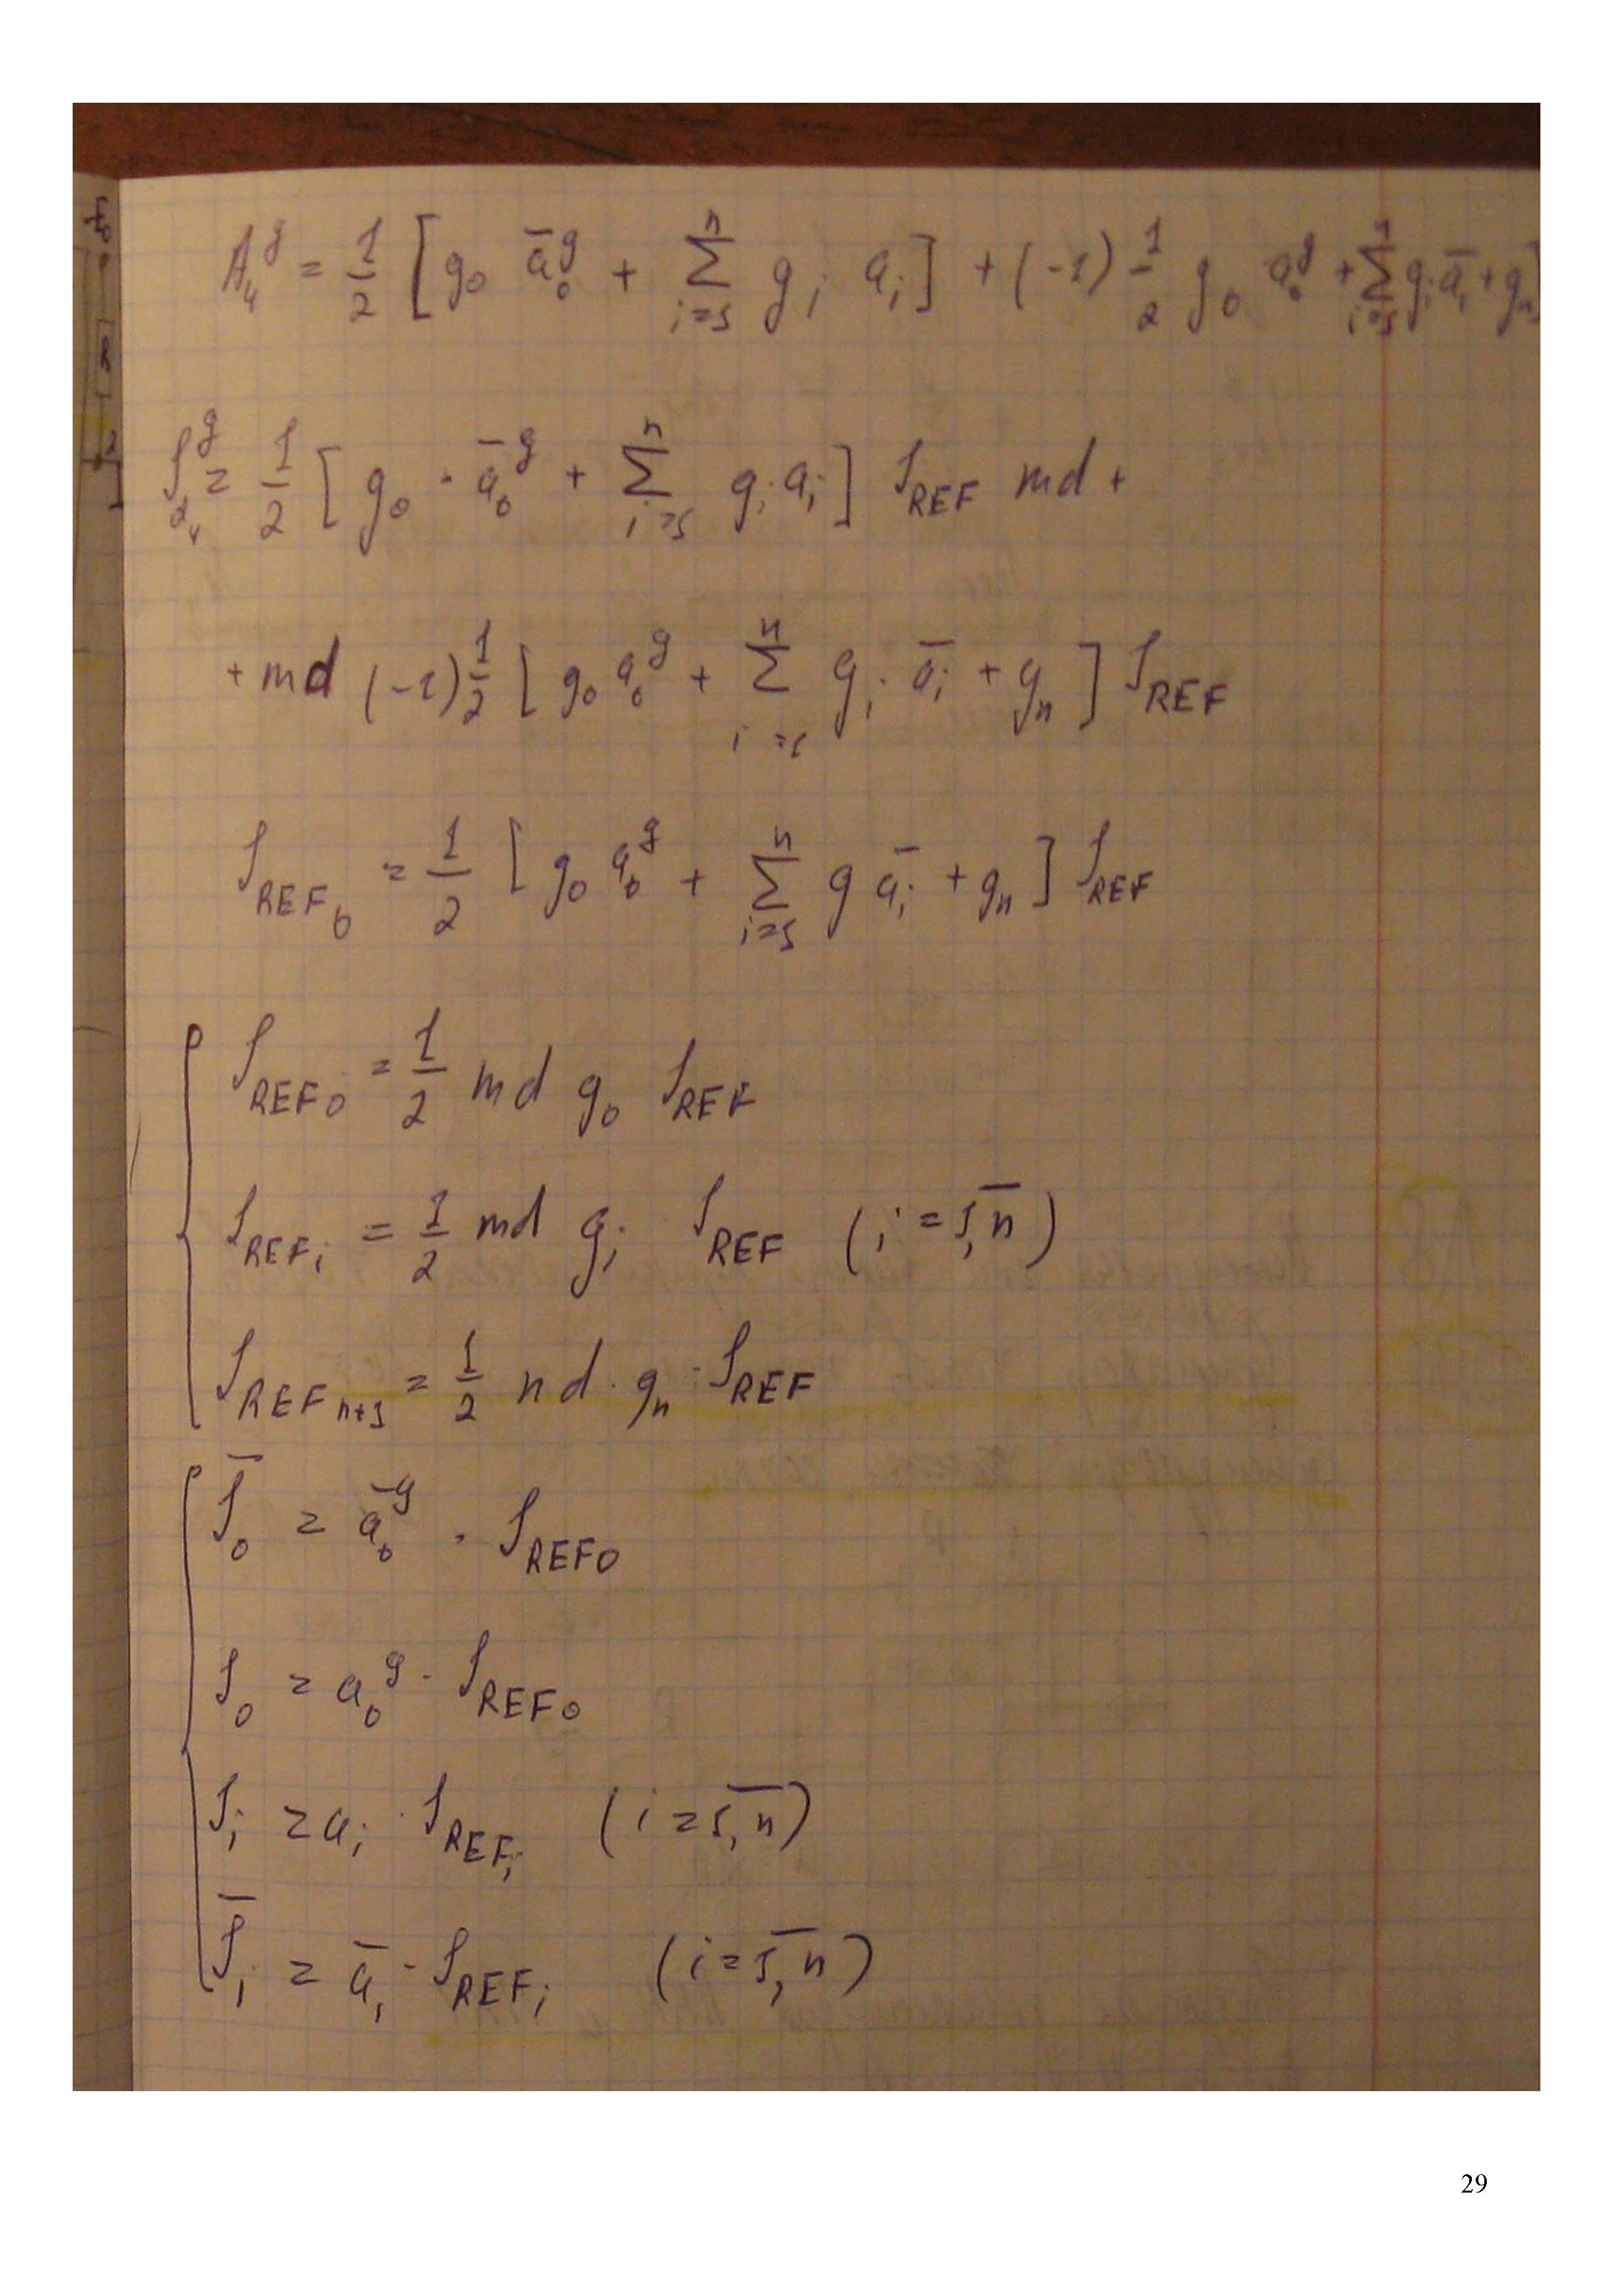 A₄^g = 1/2 [g₀ ā₀^g + Σ_{i=1}^{n} g_i a_i] + (-1) 1/2 g₀ a₀^g + Σ_{i=1}^{n} g_i ā_i + g_n]
I_{d₄}^g = 1/2 [g₀ · ā₀^g + Σ_{i=1}^{n} g_i a_i] I_REF md +
+ md (-1) 1/2 [g₀ a₀^g + Σ_{i=1}^{n} g_i · ā_i + g_n] I_REF
I_REF₀ = 1/2 [g₀ a₀^g + Σ_{i=1}^{n} g ā_i + g_n] I_REF
I_REF0 = 1/2 md g₀ I_REF
I_REF_i = 1/2 md g_i I_REF (i = 1,n̅)
I_REF_{n+1} = 1/2 nd · g_n · I_REF
I̅₀ = ā₀^g · I_REF0
I₀ = a₀^g · I_REF0
I_i = a_i · I_REF_i (i = 1,n̅)
I̅_i = ā_i · I_REF_i (i = 1,n̅)
29